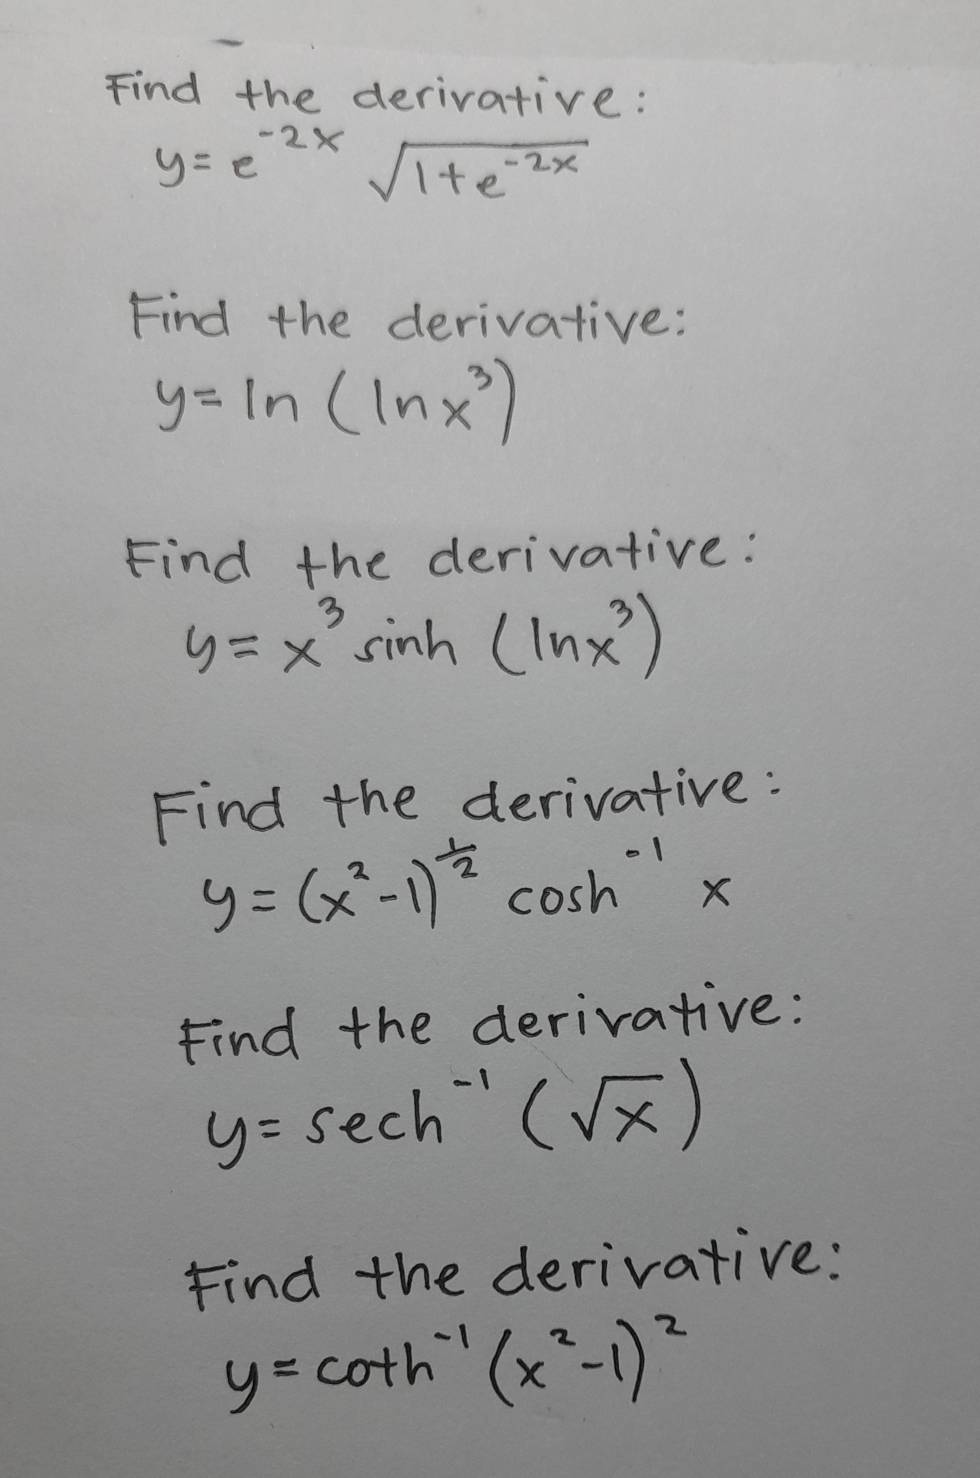 Find the derivative:
y = e^{-2x} √(1+e^{-2x})
Find the derivative:
y = ln (lnx³)
Find the derivative:
y = x³ sinh (lnx³)
Find the derivative:
y = (x²-1)^{1/2} cosh⁻¹ x
Find the derivative:
y = sech⁻¹ (√x)
Find the derivative:
y = coth⁻¹ (x²-1)²